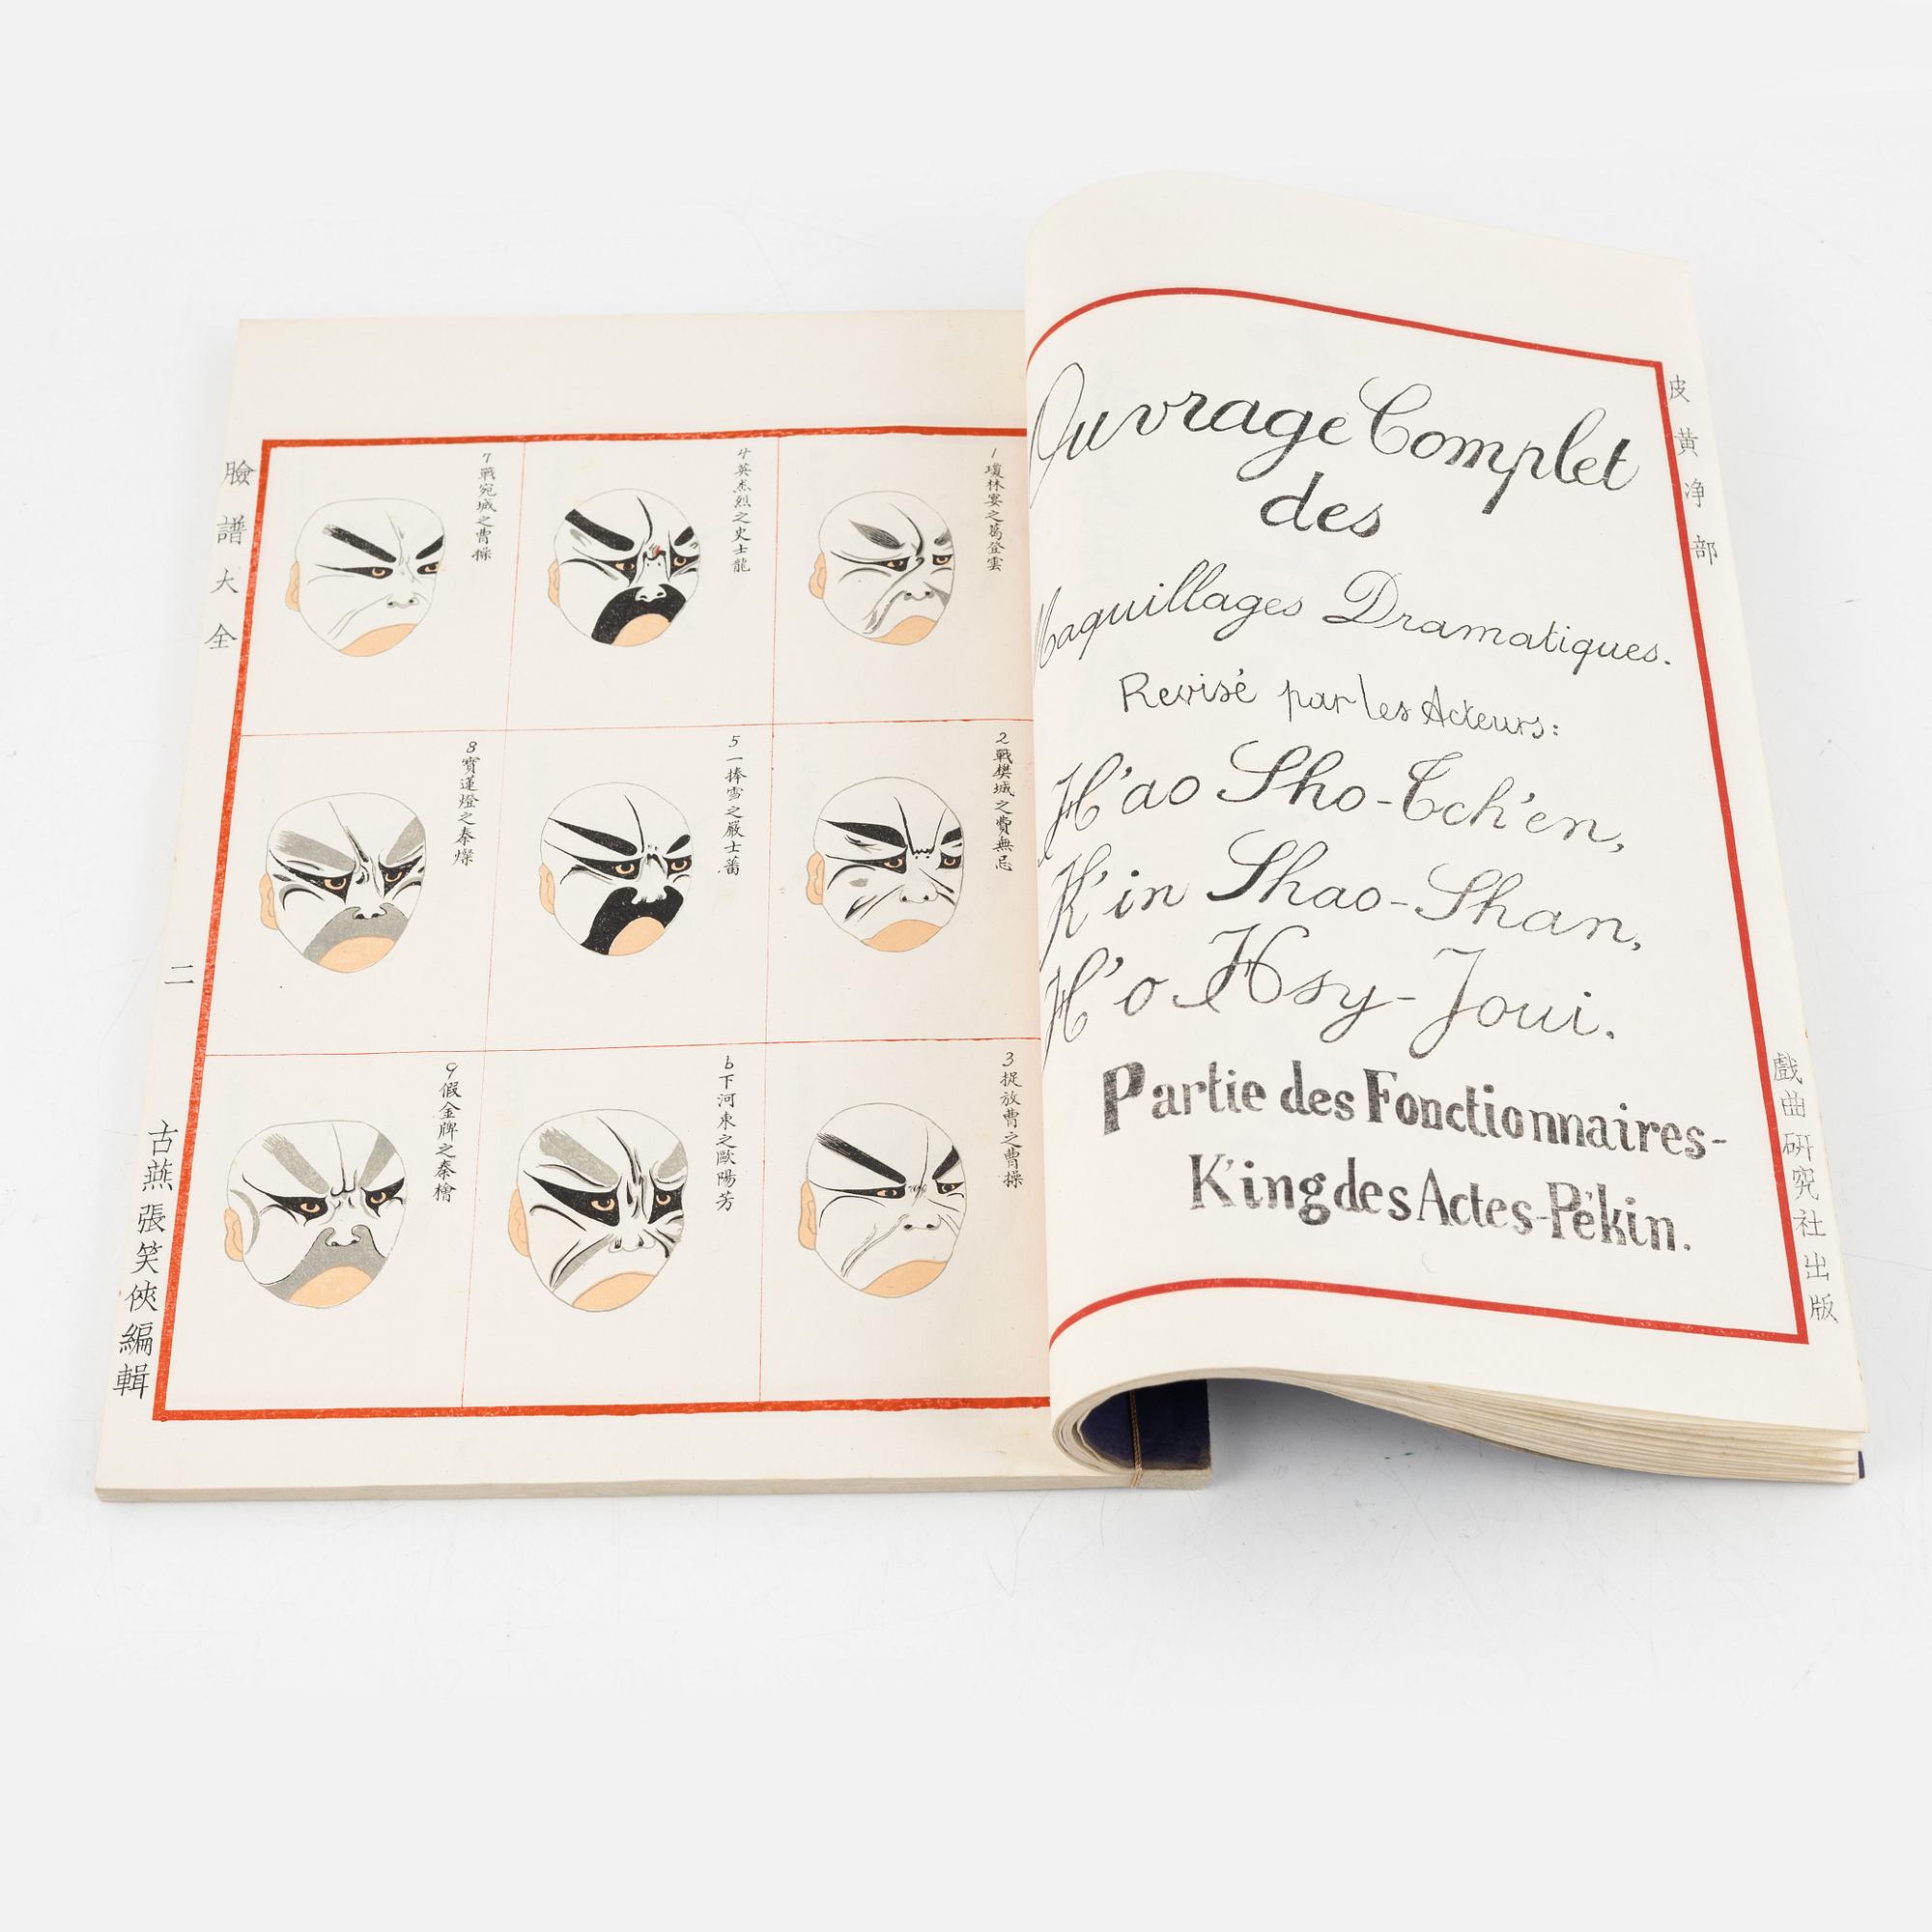 臉譜大全
二
古燕張笑俠編輯
1 瓊林宴之葛登雲
2 戰樊城之費無忌
3 捉放曹之曹操
4 英杰烈之史士龍
5 一捧雪之嚴士蕃
6 下河東之歐陽芳
7 戰宛城之曹操
8 寶蓮燈之秦燦
9 假金牌之秦檜
Ouvrage Complet
des
Maquillages Dramatiques.
Revisé par les Acteurs:
H'ao Sho-Tch'en,
K'in Shao-Shan,
H'o Hsy-Joui.
Partie des Fonctionnaires-
K'ing des Actes-Pékin.
皮黃净部
戲曲研究社出版